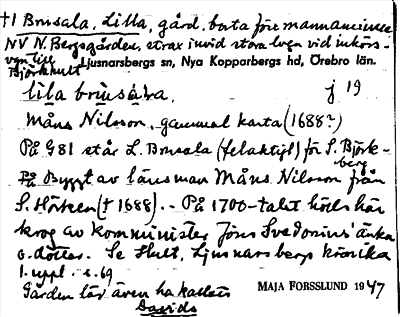 †1 Brusala, Lilla, gård, borta före mannaminne
NV N. Bergsgården, strax invid stora vägen vid inkörs-
vgn till
Björkhult
Ljusnarsbergs sn, Nya Kopparbergs hd, Örebro län.
lila brusala, j 19
Måns Nilsson, gammal karta (1688?)
På G81 står L. Brusala (felaktigt) för S. Björk-
berg
Byggt av länsman Måns Nilsson från
S. Hörken († 1688). -- På 1700-talet hölls här
krog av komminister Jöns Svedonius' änka
o. dotter. Se Hult, Ljusnarsbergs krönika
1. uppl. s. 69
Gården lär även ha kallats
Davids
MAJA FORSSLUND 1947